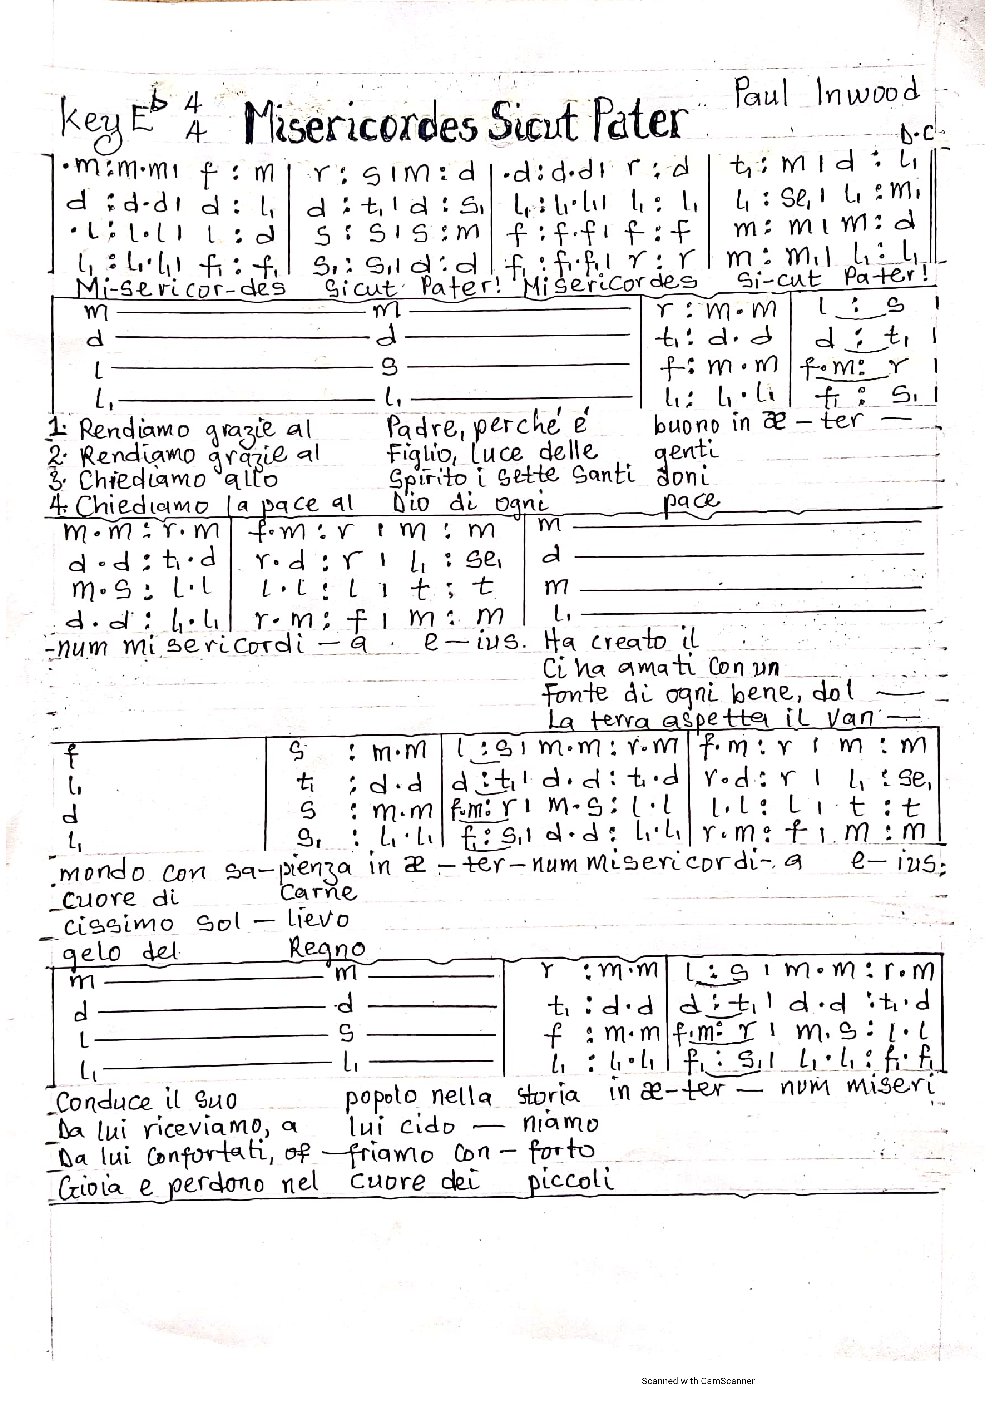 Key E♭ 4/4 Misericordes Sicut Pater Paul Inwood
D.C.
.m:m.m| f : m | r : s | m : d | .d:d.d| r : d | t₁ : m | d : l₁ ||
d :d.d| d : l₁ | d : t₁ | d : s₁ | l₁:l₁.l₁| l₁ : l₁ | l₁ : se₁ | l₁ : m₁ ||
.l:l.l| l : d | s : s | s : m | f : f.f| f : f | m : m | m : d ||
l₁ : l₁.l₁| f₁ : f₁ | s₁ : s₁| d : d | f₁ : f₁.f₁| r : r | m : m₁| l₁ : l₁ ||
Mi-sericor-des Sicut Pater! Misericordes Si-cut Pater!
m ——— m ——— | r : m.m | l : s |
d ——— d ——— | t₁ : d.d | d : t₁ |
l ——— s ——— | f : m.m | f.m : r |
l₁ ——— l₁ ——— | l₁ : l₁.l₁ | f₁ : s₁ |
1. Rendiamo grazie al Padre, perché é buono in æ - ter —
2. Rendiamo grazie al Figlio, luce delle genti
3. Chiediamo allo Spirito i sette Santi doni
4. Chiediamo la pace al Dio di ogni pace
m.m : r.m | f.m : r | m : m | m ———
d.d : t₁.d | r.d : r | l₁ : se₁ | d ———
m.s : l.l | l.l : l | t : t | m ———
d.d : l₁.l₁ | r.m : f | m : m | l₁ ———
-num misericordi - a e - ius. Ha creato il
Ci ha amati con un
Fonte di ogni bene, dol —
La terra aspetta il Van —
f | s : m.m | l : s | m.m : r.m | f.m : r | m : m
l₁ | t₁ : d.d | d : t₁ | d.d : t₁.d | r.d : r | l₁ : se₁
d | s : m.m | f.m : r | m.s : l.l | l.l : l | t : t
l₁ | s₁ : l₁.l₁ | f₁ : s₁| d.d : l₁.l₁ | r.m : f | m : m
mondo con sa-pienza in æ - ter-num misericordi- a e- ius:
cuore di Carne
cissimo sol - lievo
gelo del Regno
m ——— m ——— | r : m.m | l : s | m.m : r.m
d ——— d ——— | t₁ : d.d | d : t₁ | d.d : t₁.d
l ——— s ——— | f : m.m | f.m : r | m.s : l.l
l₁ ——— l₁ ——— | l₁ : l₁.l₁ | f₁ : s₁| l₁.l₁ : f₁.f₁
Conduce il suo popolo nella storia in æ-ter — num miseri
Da lui riceviamo, a lui cido — niamo
Da lui confortati, of - friamo con - forto
Gioia e perdono nel cuore dei piccoli
Scanned with CamScanner